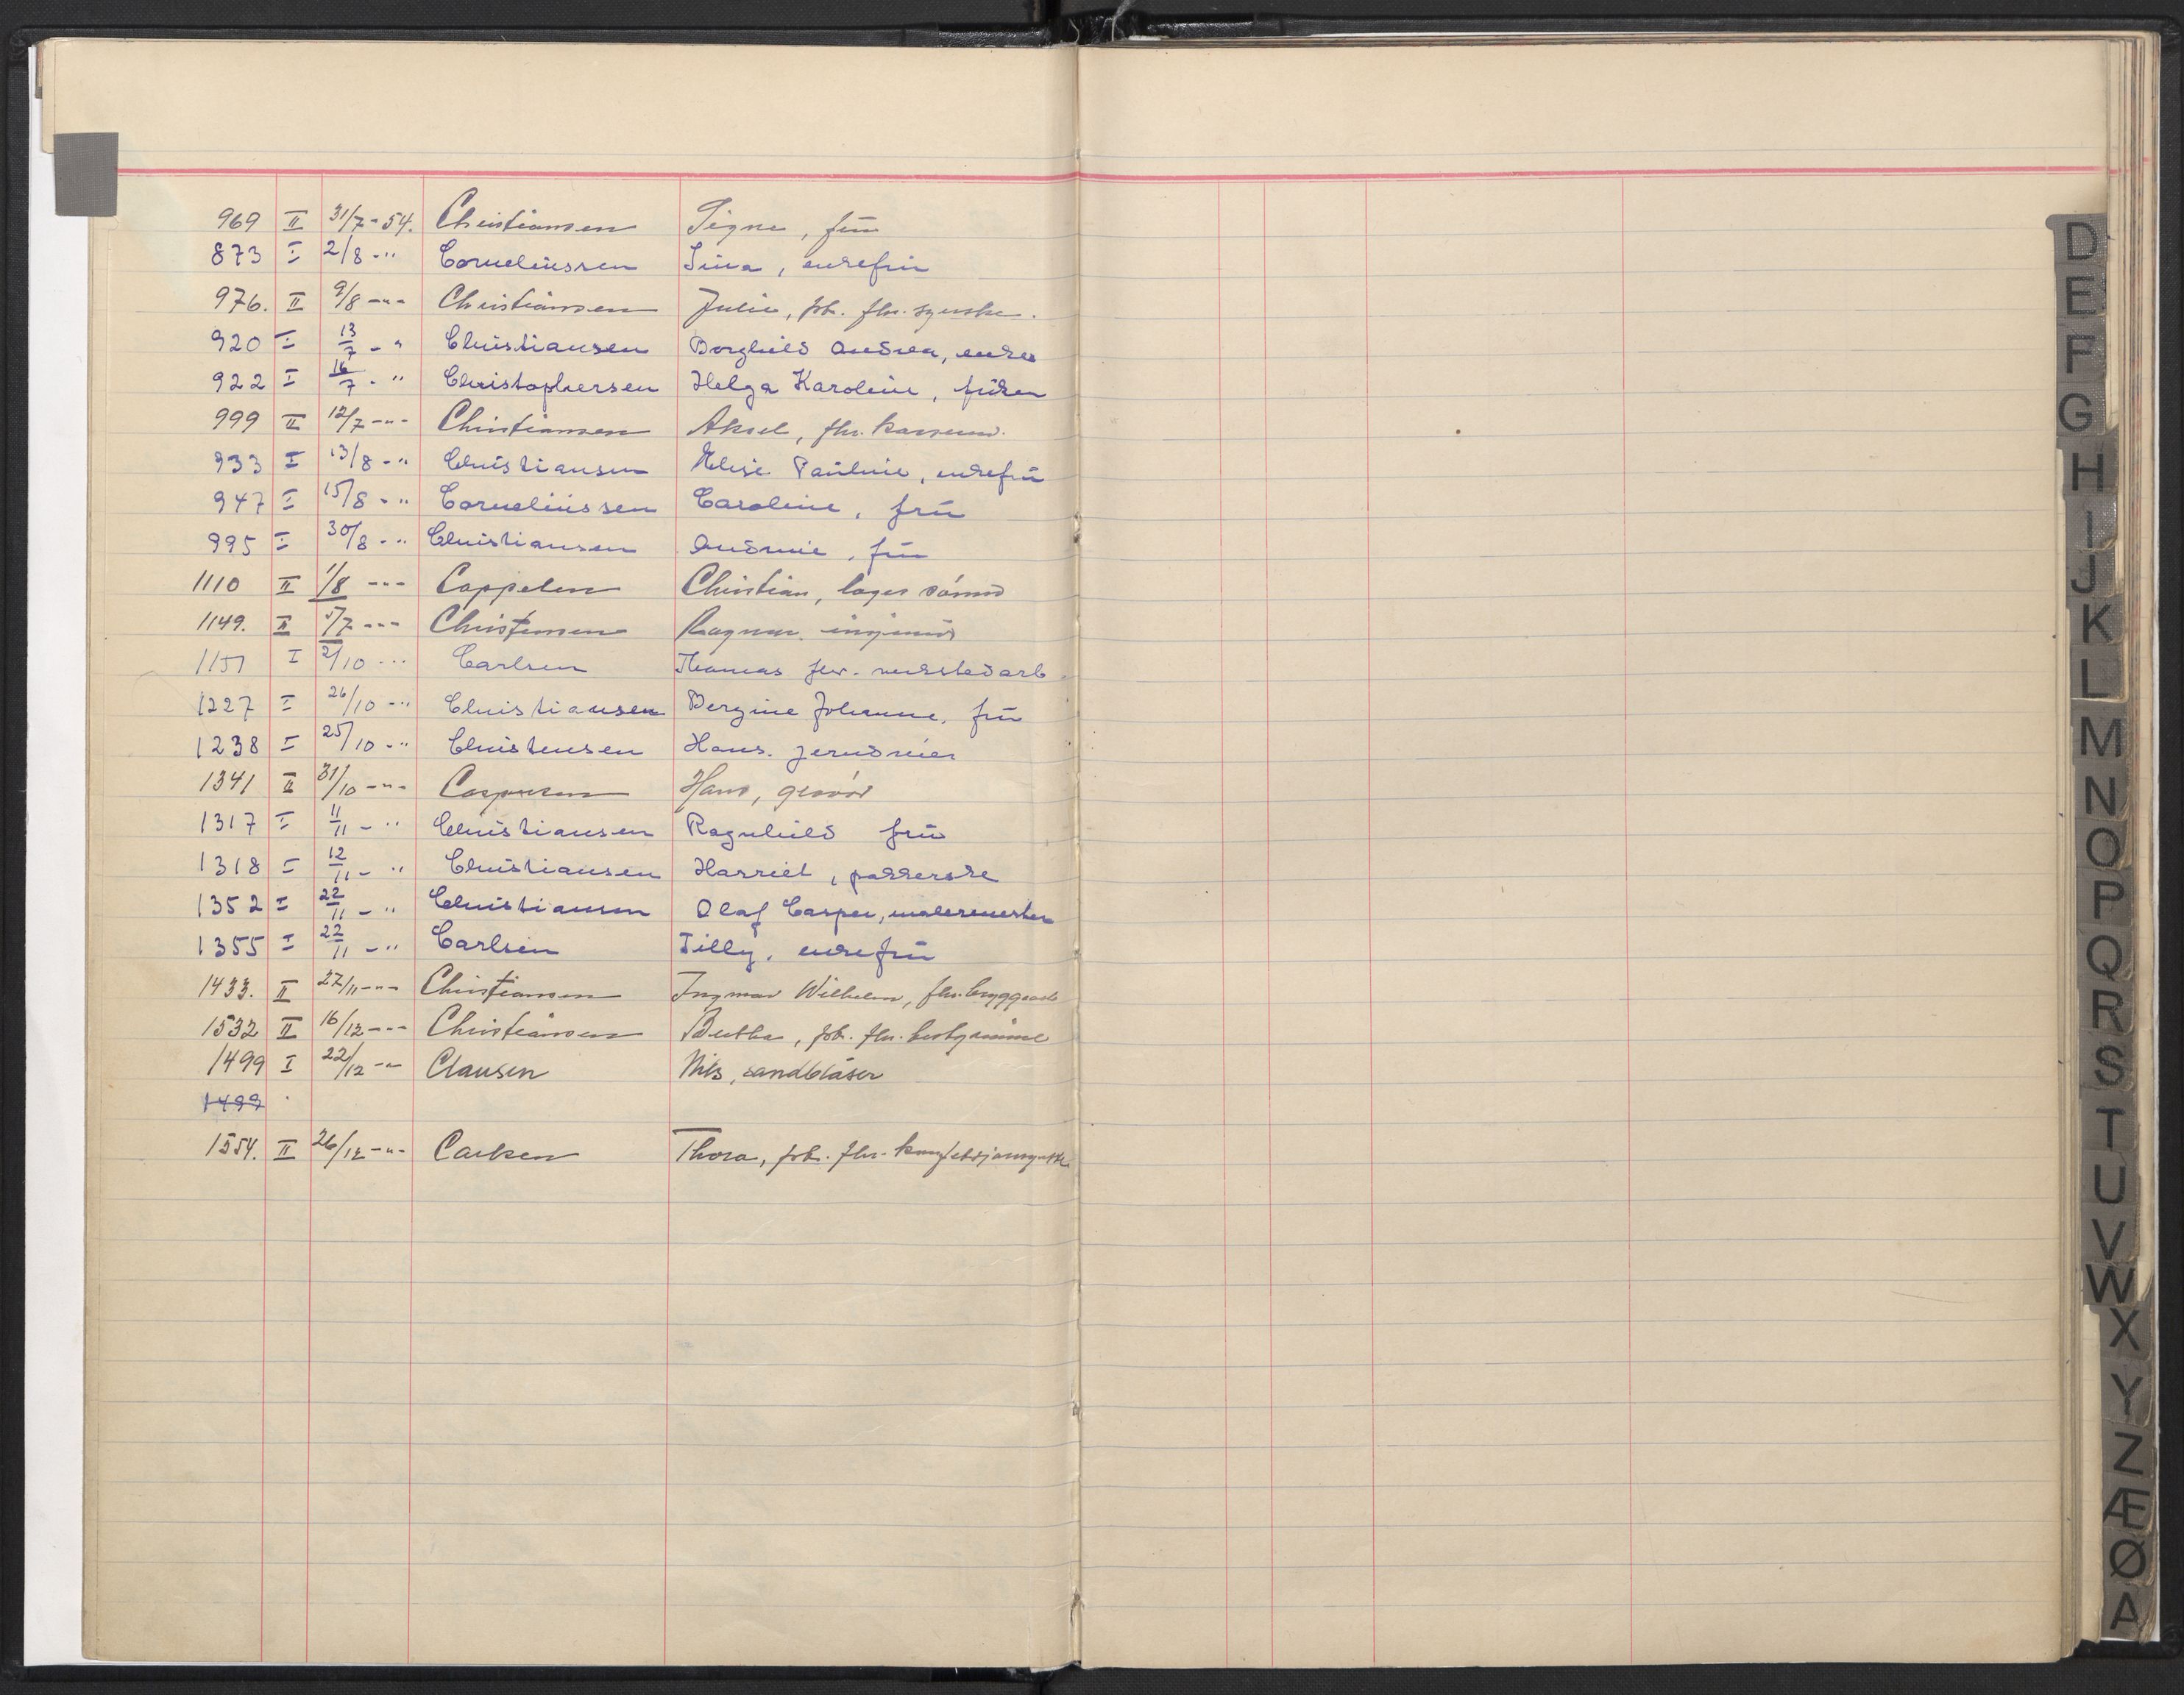 969 II 31/7-54. Christiansen Signe, frù
873 I 2/8-" Corneliùssen Lina, enkefrù
976. II 9/8-"- Christiansen Julie, fsk. fhv. syerske.
920 I 13/7-" Christiansen Borghild Andrea, enke
922 I 16/7-" Christophersen Helga Karoline, frøken
999 II 12/7-"- Christiansen Aksel, fhv.
933 I 13/8-" Christiansen Elise Paùline, enkefrù
947 I 15/8-" Corneliùssen Caroline, frù
995 I 30/8-" Christiansen frù
1110 II 1/8-"- Cappelen Christian, lager
1149. II 5/7-"- Christensen Ragnar, ingeniør
1151 I 2/10-"- Carlsen Thomas fhv. verkstedarb.
1227 I 26/10-" Christiansen Bergine Johanne, frù
1238 I 25/10-" Christensen Hans.
1341 II 31/10-"- Caspersen Hans, gravør
1317 I 11/11-" Christiansen Ragnhild frù
1318 I 12/11-" Christiansen Harriet, pakkerske
1352 I 22/11-" Christiansen Olaf Casper, malermester
1355 I 22/11-" Carlsen Tilly, enkefrù
1433. II 27/11-"- Christiansen Ingmar Wilhelm, fhv. bryggearb
1532 II 16/12-"- Christiansen Bertha, fsk. fhv.
1499 I 22/12-"- Clausen Nils, sandblåser
1499
1554. II 26/12-"- Carlsen Thora, fsk. fhv.
D
E
F
G
H
I
J
K
L
M
N
O
P
Q
R
S
T
U
V
W
X
Y
Z
Æ
Ø
A